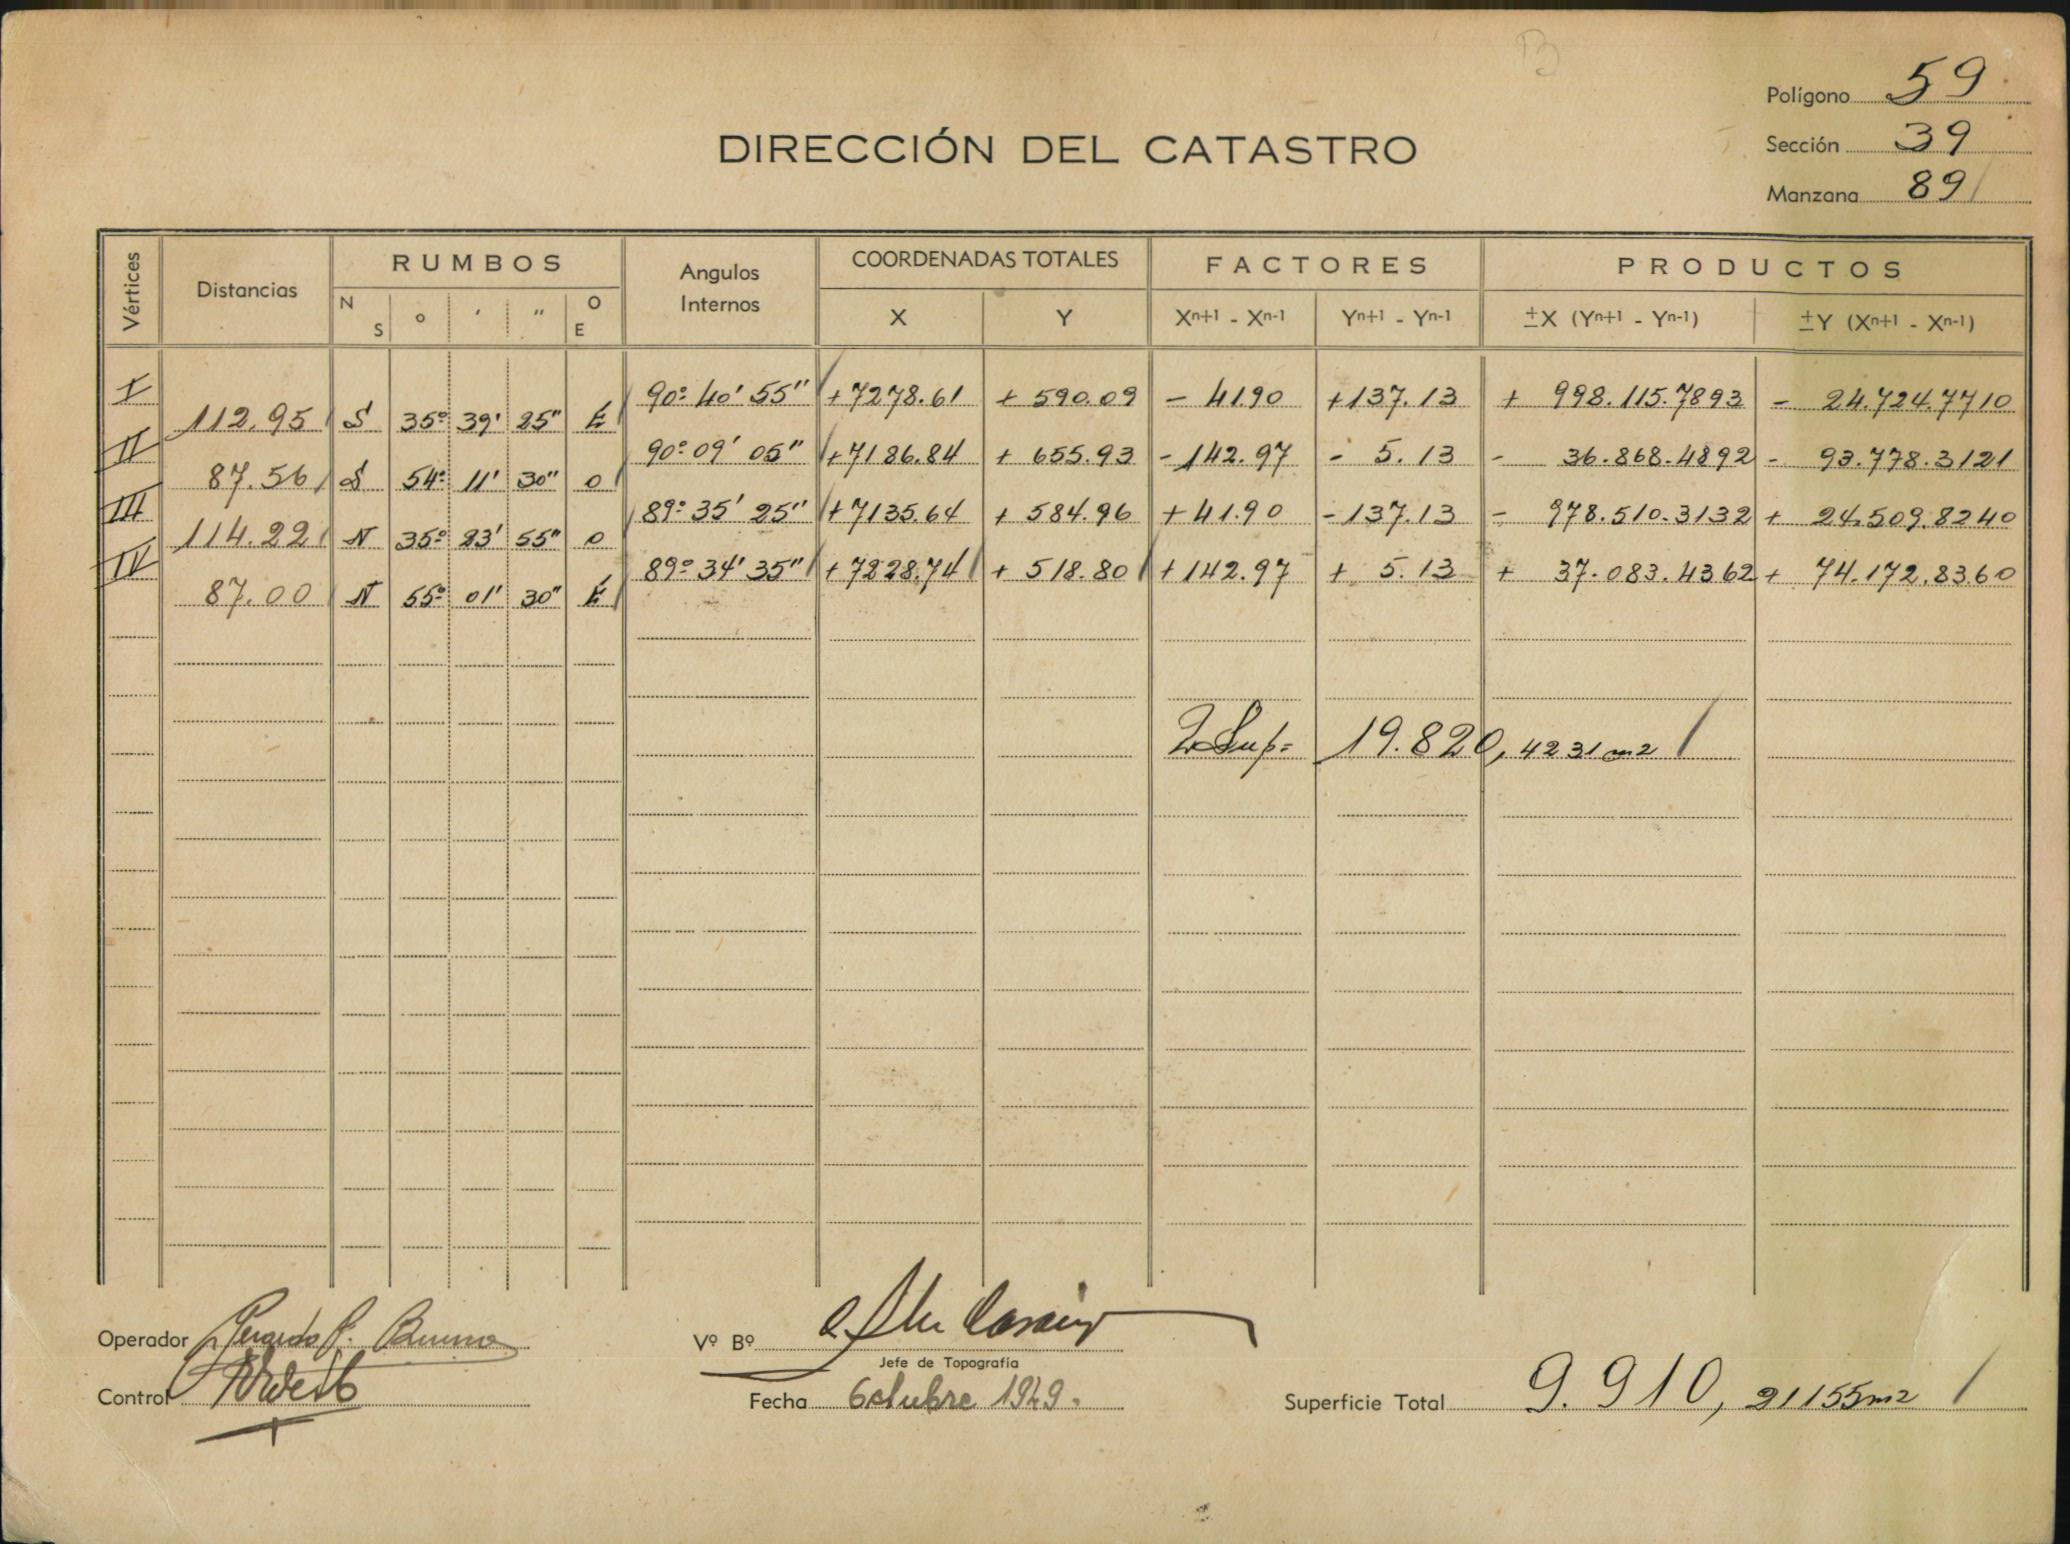 Polígono 59
DIRECCIÓN DEL CATASTRO
Sección 39
Manzana 89
Vértices Distancias RUMBOS Angulos Internos COORDENADAS TOTALES FACTORES PRODUCTOS
N S o ' " O E X Y Xn+1 - Xn-1 Yn+1 - Yn-1 ±X (Yn+1 - Yn-1) ±Y (Xn+1 - Xn-1)
I 90º 40' 55" +7278.61 + 590.09 - 41.90 +137.13 + 998.115.7893 - 24.724.7710
112.95 S 35º 39' 25" E
II 90º 09' 05" +7186.84 + 655.93 -142.97 - 5.13 - 36.868.4892 - 93.778.3121
87.56 S 54º 11' 30" O
III 89º 35' 25" +7135.64 + 584.96 +41.90 -137.13 - 978.510.3132 + 24.509.8240
114.22 N 35º 23' 55" O
IV 89º 34' 35" +7228.74 + 518.80 +142.97 + 5.13 + 37.083.4362 + 74.172.8360
87.00 N 55º 01' 30" E
2 Sup = 19.820,4231 m2
Operador Gerardo
Vº Bº
Jefe de Topografía
Control
Fecha Octubre 1949.
Superficie Total 9.910,21155 m2